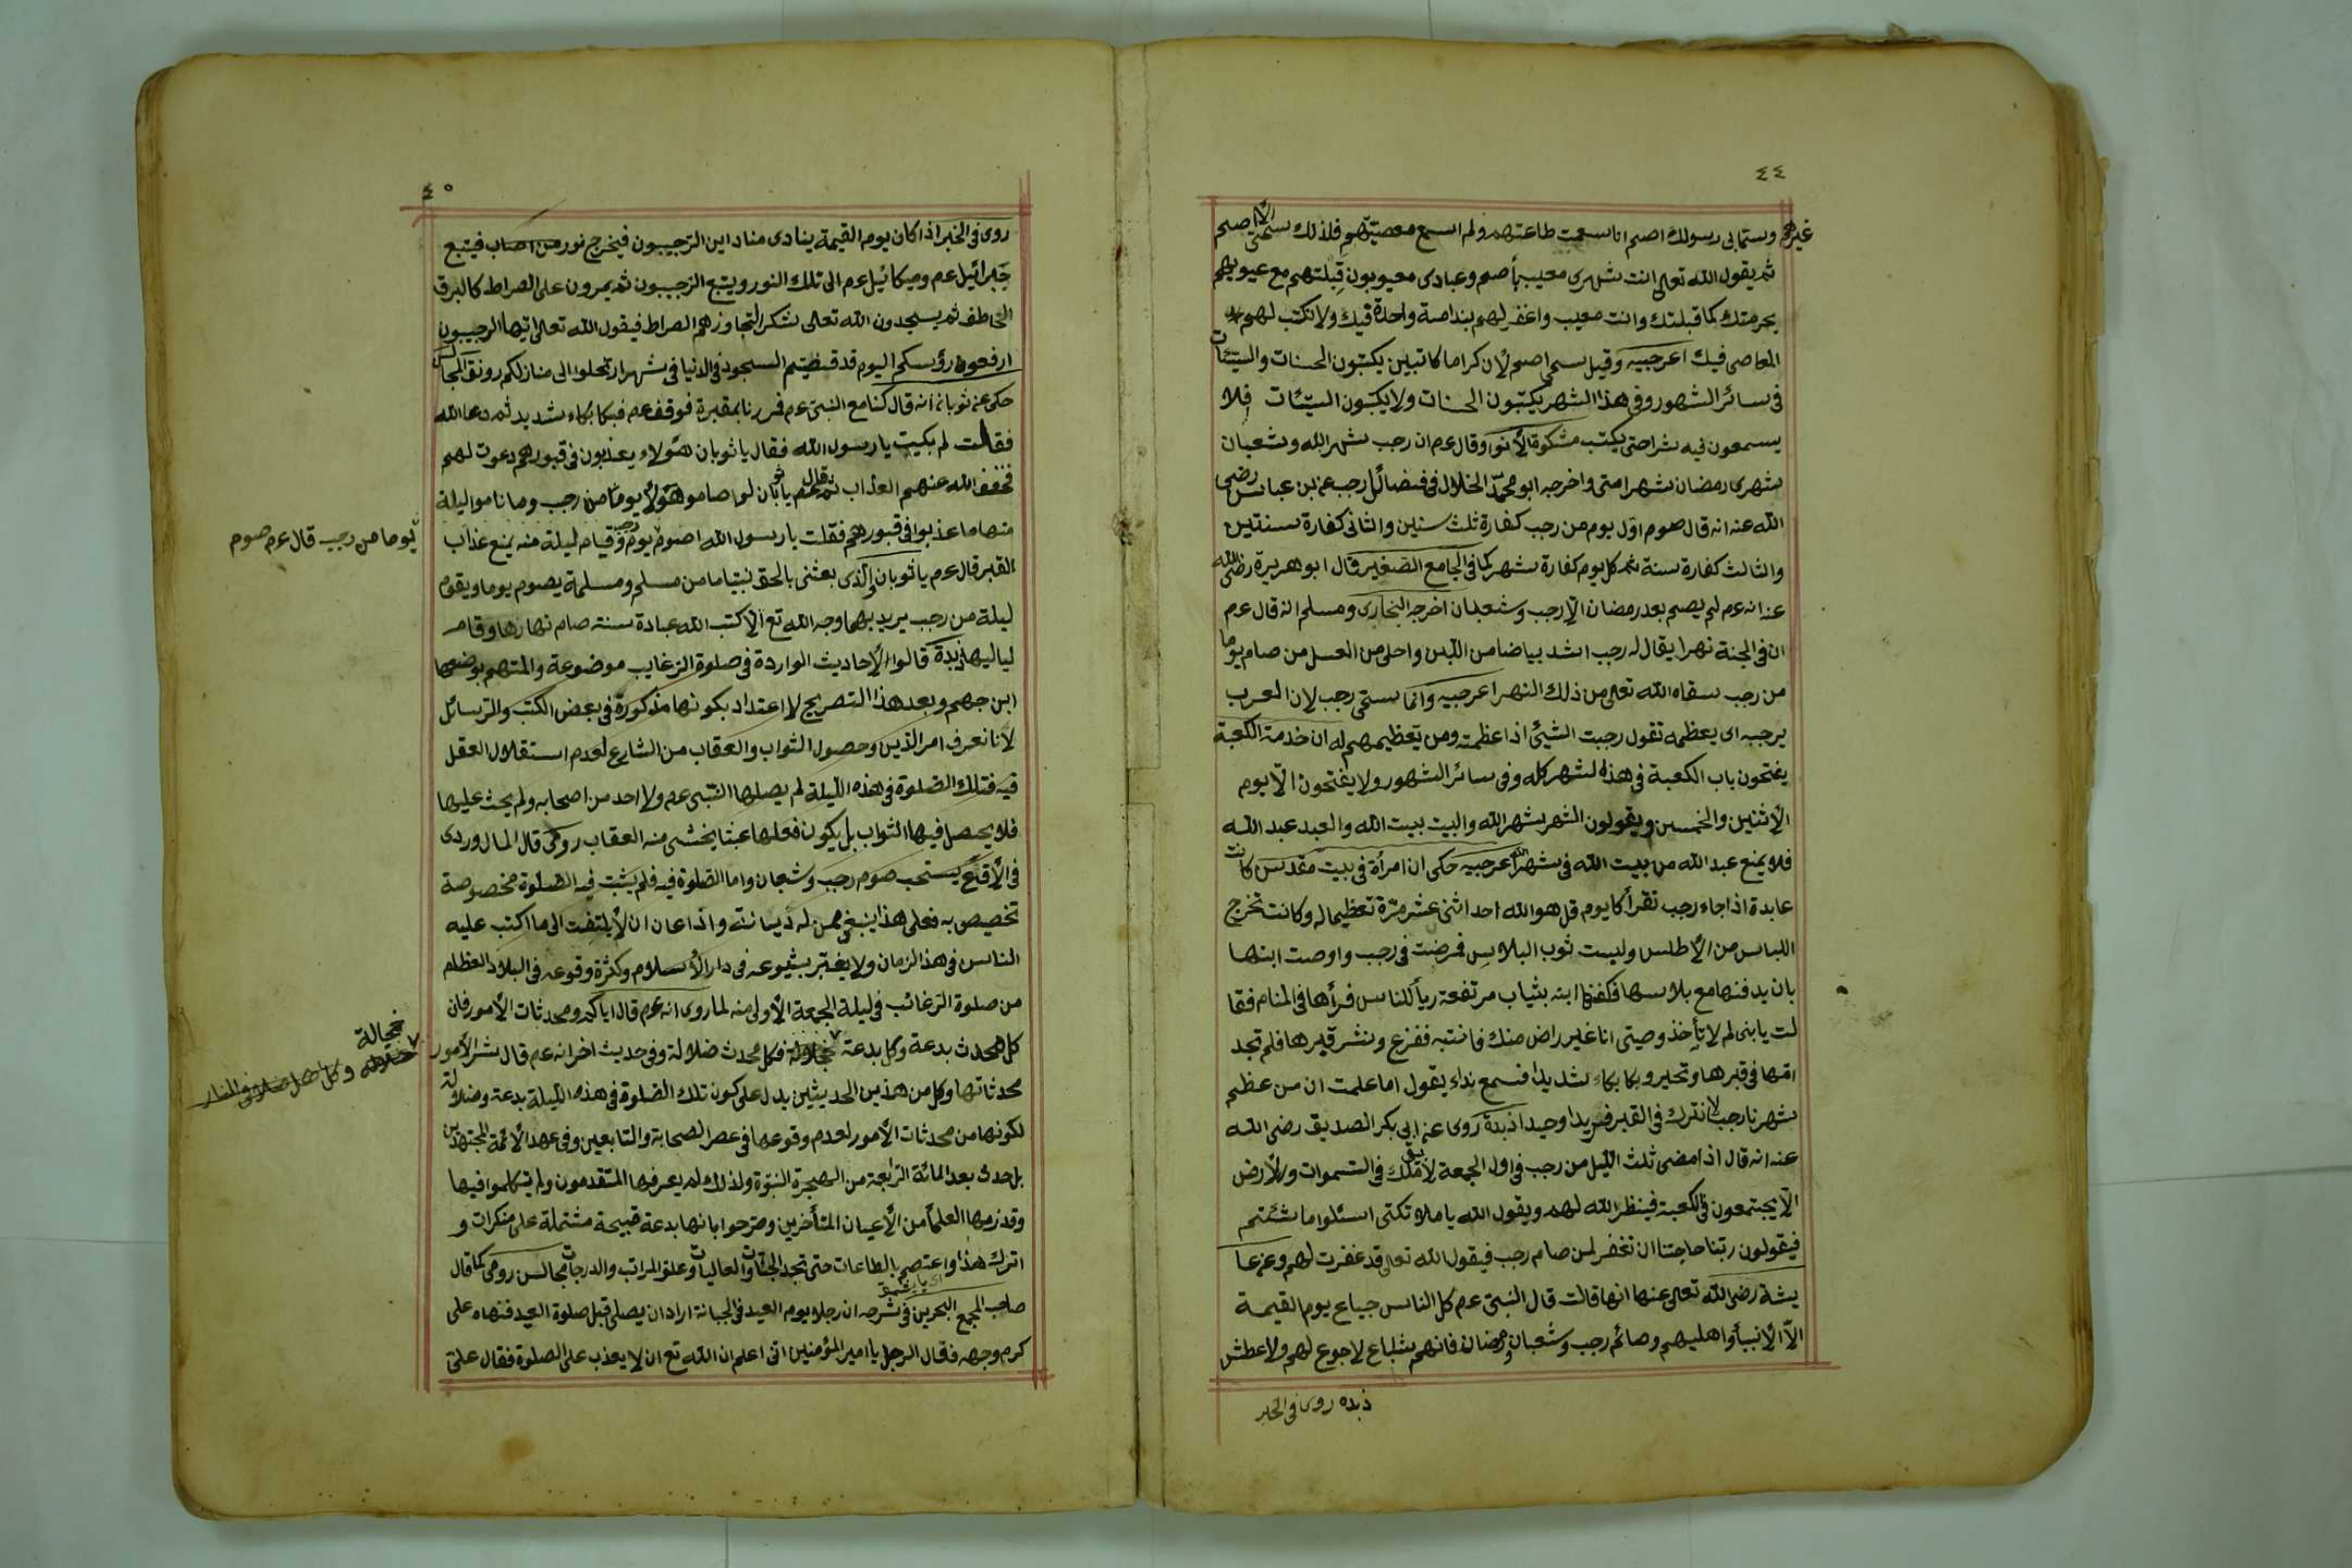 ٤٤
غيرهم وستمابى رسولك اصم انا سمعت طاعتهم ولم اسمع معصيتهم فلذلك سمى الاصم
ثم يقول الله تعالى انت شهرى معيب بأصم وعبادى معيوبون قبلتهم مع عيوبهم
بحرمتك كما قبلتك وانت معيب واغفر لهم بندامة واحدة فيك ولا تكتب لهم
المعاصى فيك اعرجبيه وقيل سمى اصم لأن كراما كاتبين يكتبون الحسنات والسيئات
فى سائر الشهور وفى هذا الشهر يكتبون الحسنات ولا يكتبون السيئات فلا
يسمعون فيه شرا حتى يكتب مشكوة الأنوا وقال عم ان رجب شهر الله وشعبان
شهرى رمضان شهر امتى واخرجه ابو محمد الخلال فى فضائل رجب عن بن عباس رضى
الله عنه انه قال صوم اول يوم من رجب كفارة ثلث سنين والثانى كفارة سنتين
والثالث كفارة سنة ثم كل يوم كفارة شهر كما فى الجامع الصغير قال ابو هريرة رضى الله
عنه انه عم لم يصم بعد رمضان الا رجب وشعبان اخرجه البخارى ومسلم انه قال عم
ان فى الجنة نهرا يقال له رجب اشد بياضا من اللبن واحلى من العسل من صام يوما
من رجب سقاه الله تعالى من ذلك النهر اعرجبيه وانما سمى رجب لان العرب
يرجبه اى يعظمه تقول رجبت الشيئ اذا عظمته ومن تعظيمهم له ان خدمة الكعبة
يفتحون باب الكعبة فى هذه لشهر كله وفى سائر الشهور ولا يفتحون الا يوم
الإثنين والخمسين ويقولون الشهر شهر الله والبيت بيت الله والعبد عبد الله
فلا يمنع عبد الله من بيت الله فى شهر الله اعرجبيه حكى ان امرأة فى بيت مقدس كانت
عابدة اذا جاء رجب تقرأ كا يوم قل هو الله احد اثنى عشر مرة تعظيما له وكانت تخرج
اللباس من الأطلس ولبست ثوب البلاس فمرضت فى رجب واوصت ابنها
بان يدفنها مع بلاسها فكفنها ابنه بثياب مرتفعة رياً للناس فرأها فى المنام فقا
لت يابنى لم لا تأخذ وصيتى انا غير راض منك فانتبه ففزع ونشر قبرها فلم تجد
امها فى قبرها وتحير وبكا بكاء شديدا فسمع نداء يقول اما علمت ان من عظم
شهرنا رجب لا نترك فى القبر فريدا وحيدا ذبدة روى عن ابى بكر الصديق رضى الله
عنه انه قال اذا مضى ثلث الليل من رجب فى اول الجمعة لا يبقى ملك فى السموات والأرض
الا يجتمعون فى الكعبة فينظر الله لهم ويقول الله يا ملا ئكتى اسئلوا ما شئتم
فيقولون ربنا حاجتنا ان تغفر لمن صام رجب فيقول الله تعالى قد غفرت لهم وعن عا
يشة رضى الله تعالى عنها انها قالت قال النبى عم كل الناس جياع يوم القيمة
الا الأنبياء واهليهم وصائم رجب وشعبان ورمضان فانهم شباع لا جوع لهم ولا عطش
ذبده روى فى الخبر
٤٥
روى فى الخبر اذا كان يوم القيمة ينادى مناد اين الرجبيون فيخرج نور من اصاب فيتبع
جبرائيل عم وميكائيل عم الى تلك النور ويتبع الرجبيون ثم يمرون على الصراط كالبرق
الخاطف ثم يسجدون الله تعالى شكرا لتجاوزهم الصراط فيقول الله تعالى ايها الرجبيون
ارفعون رؤسكم اليوم قد قضيتم السجود فى الدنيا فى شهر ارتحلوا الى منازلكم رونق المجالس
حكى عن ثوبان انه قال كنا مع النبى عم فمررنا بمقبرة فوقف عم فبكا بكاء شديد ثم دعا الله
فقالت لم بكيت يا رسول الله فقال يا ثوبان هؤلاء يعذبون فى قبورهم دعوت لهم
فخفف الله عنهم العذاب ثم قال عم يا ثوبان لو صاموا هؤلأ يوما من رجب وما ناموا ليلة
منها ما عذبوا فى قبورهم فقلت يا رسول الله اصوم يوم وقيام ليلة منه يمنع عذاب
يوما من رجب قال عم صوم
القبر قال عم يا ثوبان والذى بعثنى بالحق نبيا ما من مسلم ومسلمة يصوم يوما ويقوم
ليلة من رجب يريد بهما وجه الله تع الا كتب الله عبادة سنة صام نهارها وقام
لياليها ذبدة قالوا الأحاديث الواردة فى صلوة الرغايب موضوعة والمتهم بوضعها
ابن جهم وبعد هذا التصريح لا اعتداد بكونها مذكورة فى بعض الكتب والرسائل
لأنا نعرف امر الدين وحصول الثواب والعقاب من الشارع لعدم استقلال العقل
فيه فتلك الصلوة فى هذه الليلة لم يصلها النبى عم ولا احد من اصحابه ولم يحث عليها
فلا يحصل فيها الثواب بل يكون فعلها عبثا يخشى منه العقاب رومى قال الماوردى
فى الأقناع يستحب صوم رجب وشعبان واما الصلوة فيه فلم يثبت فيه الصلوة مخصوصة
تخصيص به فعلى هذا ينبغى لمن له ديانة واذاعان ان لا يلتفت الى ما اكتب عليه
الناس فى هذا الزمان ولا يغتر بشيوعه فى دار الأسلام وكثرة وقوعه فى البلاد العظام
من صلوة الرغائب فى ليلة الجمعة الأولى منه لما روى انه عم قال اياكم ومحدثات الأمور فان
كل محدث بدعة وكل بدعة ضلالة فكل محدث ضلالة وفى حديث اخر انه عم قال شر الأمور
محدثاتها وكل من هذين الحديثين يدل على كون تلك الصلوة فى هذه الليلة بدعة وضلالة
لكونها من محدثات الأمور لعدم وقوعها فى عصر الصحابة والتابعين وفى عهد الائمة المجتهدين
بل حدث بعد المائة الرابعة من الهجرة النبوة ولذلك لم يعرفها المتقدمون ولم يتكلموا فيها
وقد زمها العلمأ من الأعيان المتأخرين وصرحوا بانها بدعة قبيحة مشتملة على منكرات و
اترك هذا واعتصم بالطاعات حتى تجد الجنات والعاليات وعلو المراتب والدرجات مجالس رومى كما قال
صاحب المجمع البحرين فى شرحه ان رجلا يوم العيد فى الجبانة اراد ان يصلى قبل صلوة العيد فنهاه على
كرم وجهه فقال الرجل يا امير المؤمنين انى اعلم ان الله تع ان لا يعذب على الصلوة فقال على